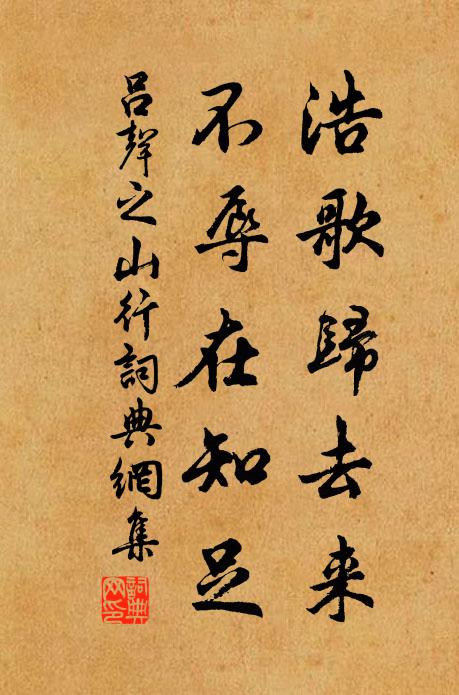 浩歌歸去来
不辱在知足
吕聲之山行詞典網集
詞典
网印